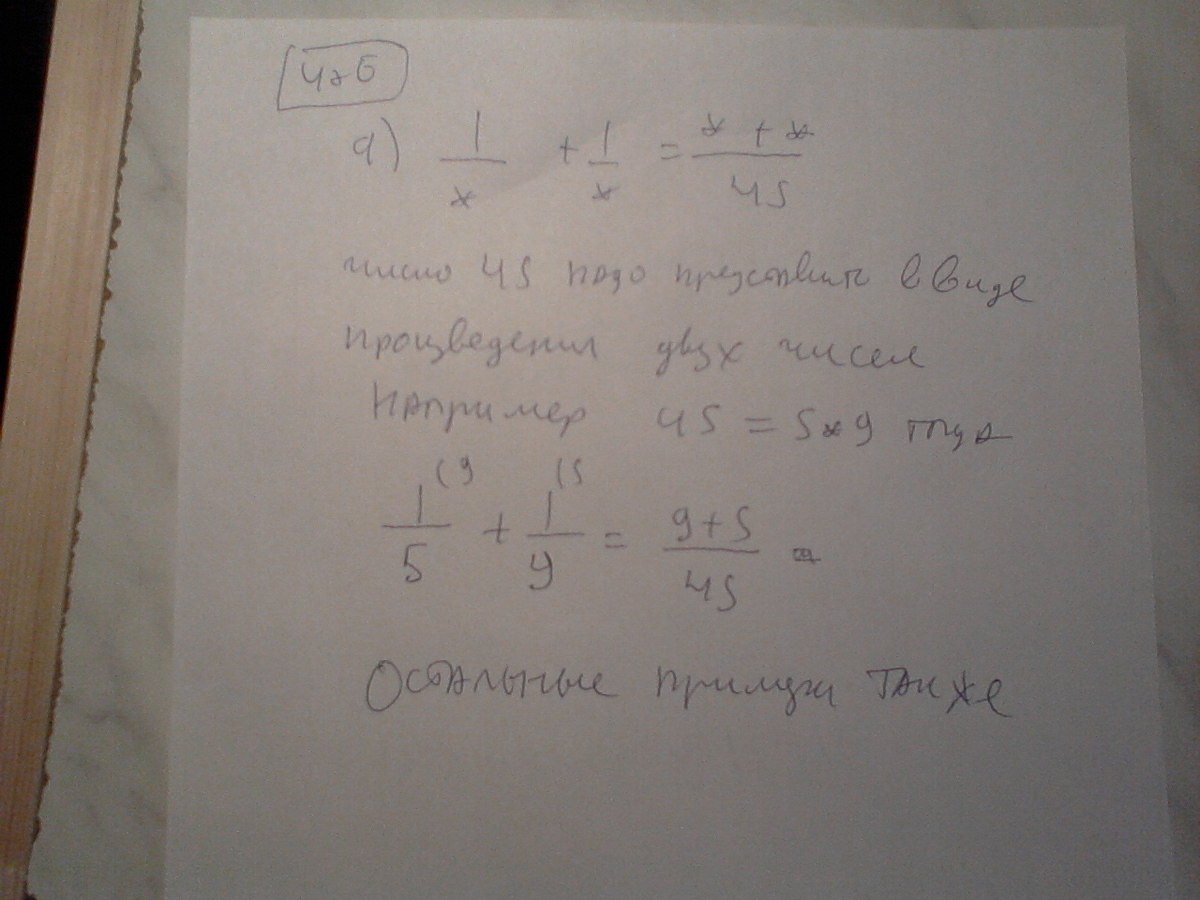 476
а) 1/* + 1/* = (* + *)/45
число 45 надо представить в виде
произведения двух чисел
Например 45 = 5*9 тогда
1/5 (9 + 1/9 (5 = (9+5)/45 =
Остальные примеры так же